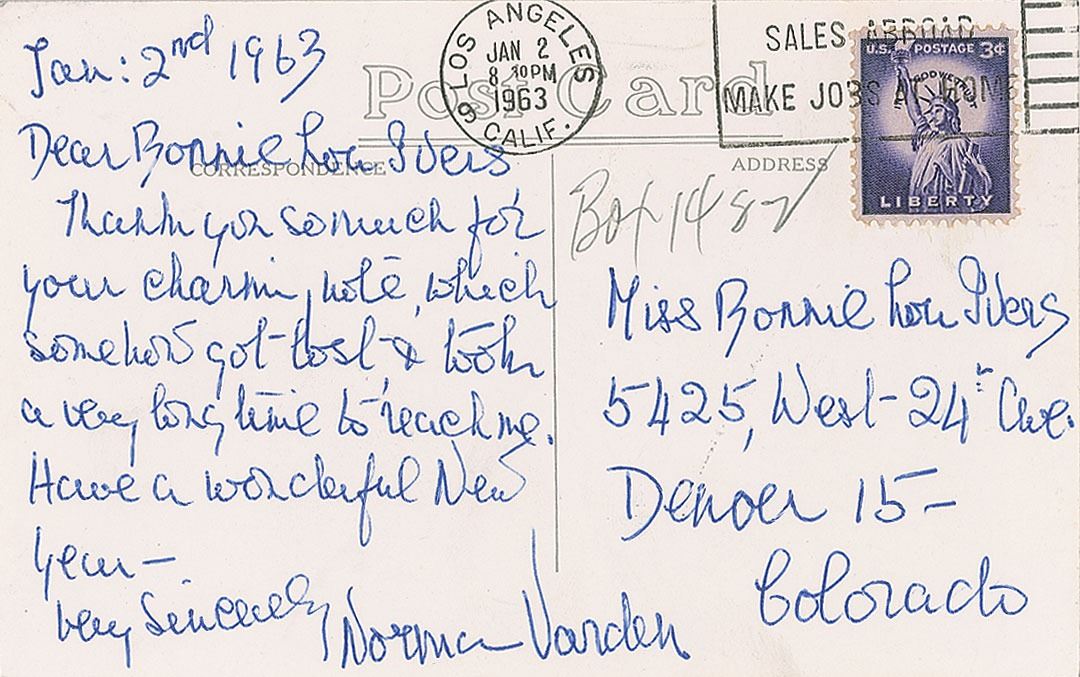 Jan: 2nd 1963
Dear Bonnie Lou Ivers
Thank you so much for
your charming note, which
somehow got lost & took
a very long time to reach me.
Have a wonderful New
Year —
Very Sincerely
Norma Varden
Post Card
CORRESPONDENCE
ADDRESS
LOS ANGELES
JAN 2
8 30PM
1963
CALIF.
9
SALES ABROAD
MAKE JOBS AT HOME
U.S. POSTAGE 3¢
IN GOD WE TRUST
LIBERTY
Box 1487
Miss Bonnie Lou Ivers
5425, West - 24th Ave.
Denver 15 -
Colorado